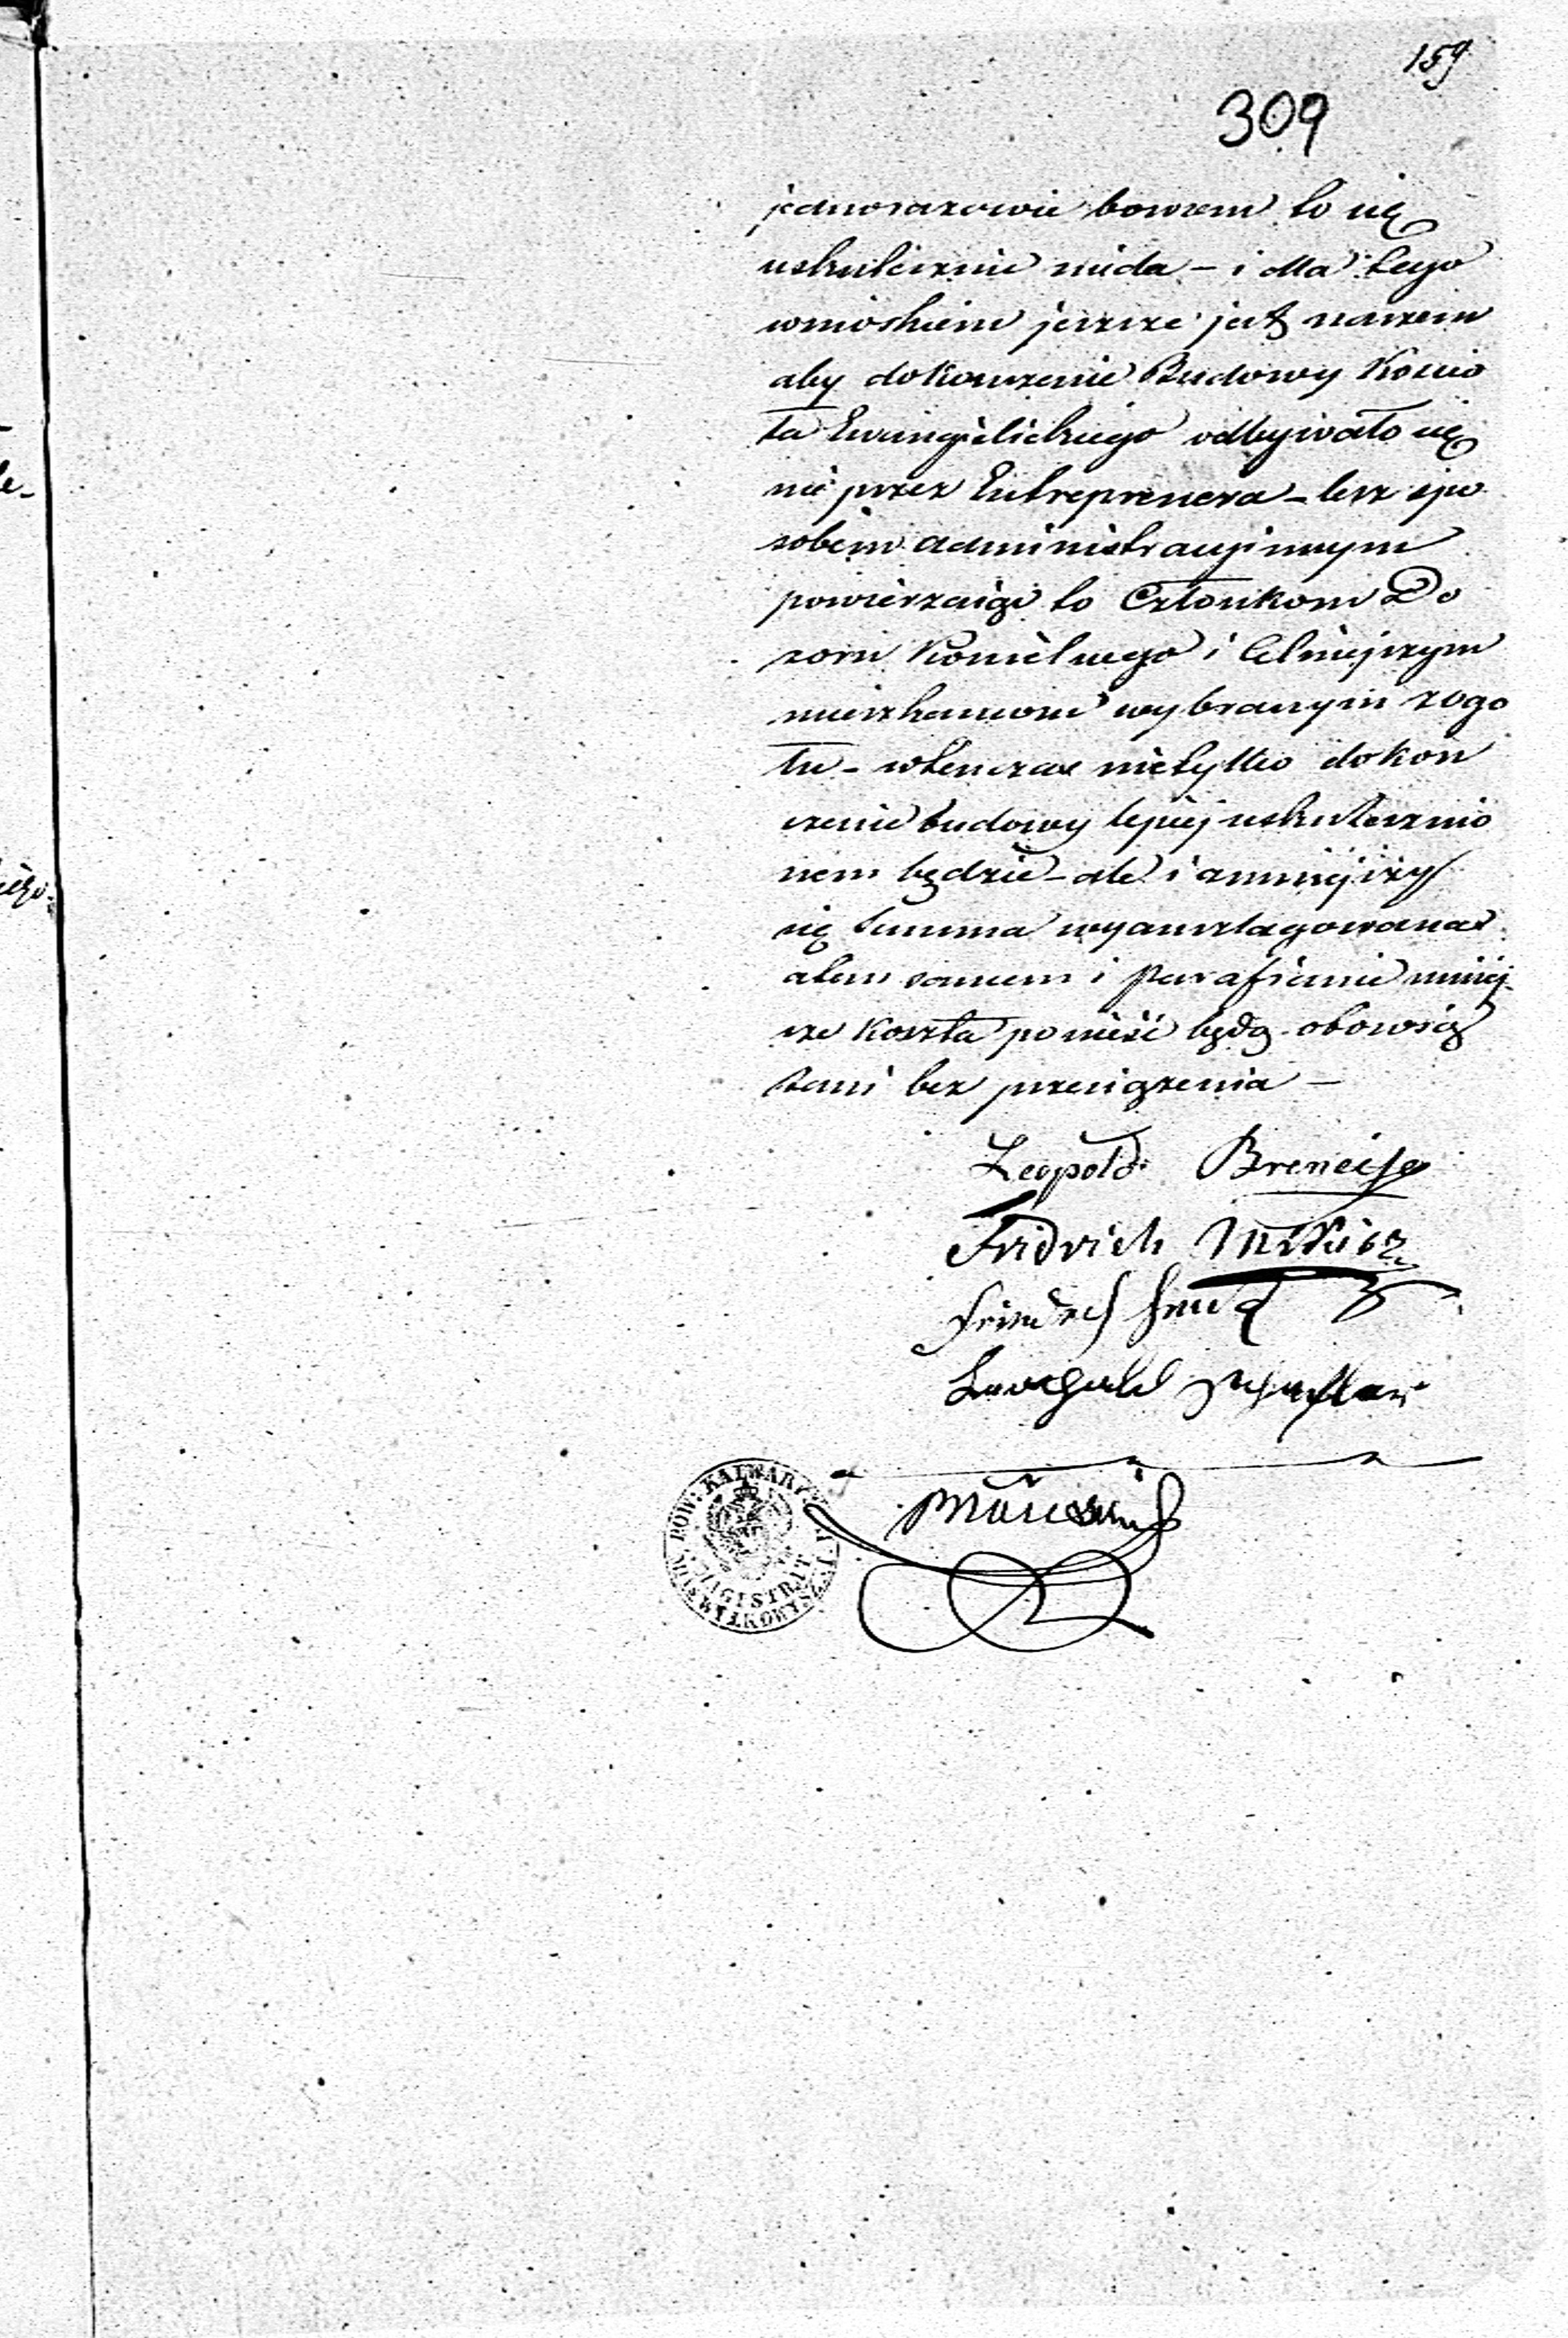 159
309
jednorazowie bowiem to się
uskutecznić nieda – i dla tego
wnioskiem jeszcze jest naszem
aby dokończenie Budowy Kościo
ła Ewangielickiego odbywało się
nie przez Entreprenera – lecz spo
sobem administracyjnym
powierzając to Członkom Do
zoru Kościelnego i celniejszym
mieszkańcom wybranym z ogó
łu – wtenczas nietylko dokoń
czenie budowy lepiej uskutecznio
nem będzie – ale i zmniejszy
się Summa wyanszlagowana
a tem samem i Parafianie mniej-
sze koszta ponieść będą obowią
zani bez przeciążenia –
Leopold
Fridrich
Friedrich
POW: KALWARYJSKI
MAGISTRAT
M. WYŁKOWYSZKI